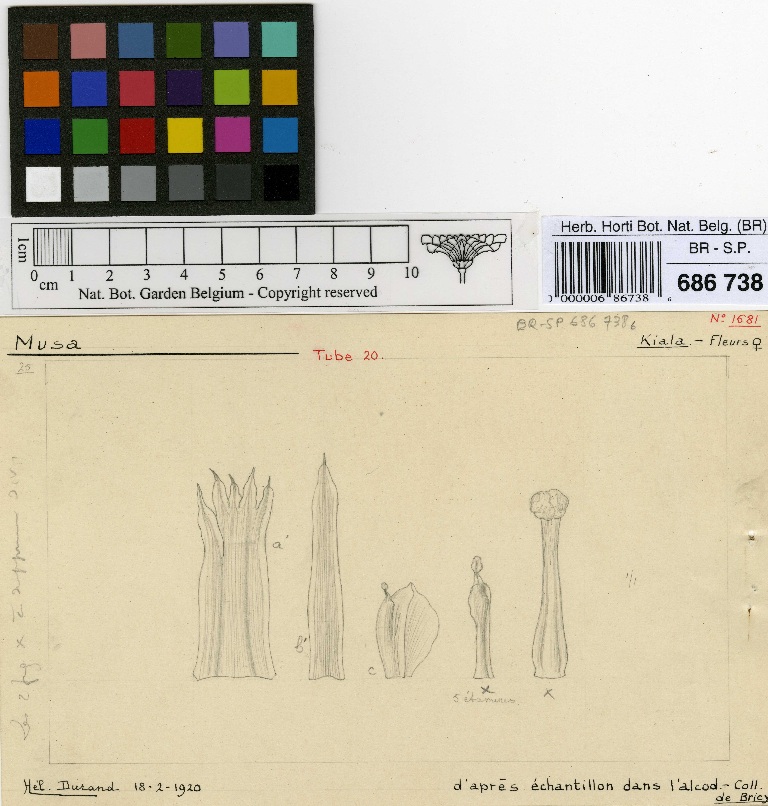 1cm
0 1 2 3 4 5 6 7 8 9 10
cm
Nat. Bot. Garden Belgium - Copyright reserved
Herb. Horti Bot. Nat. Belg. (BR)
BR - S.P.
686 738
0 000006 86738 6
BR-SP 686 738 6
Nº 1681
Musa
Tube 20.
Kiala. - Fleurs ♀
25
a'
b'
c
1/1
x
x
5 étamines
Hél. Durand. 18-2-1920
d'après échantillon dans l'alcool.- Coll.
de Briey